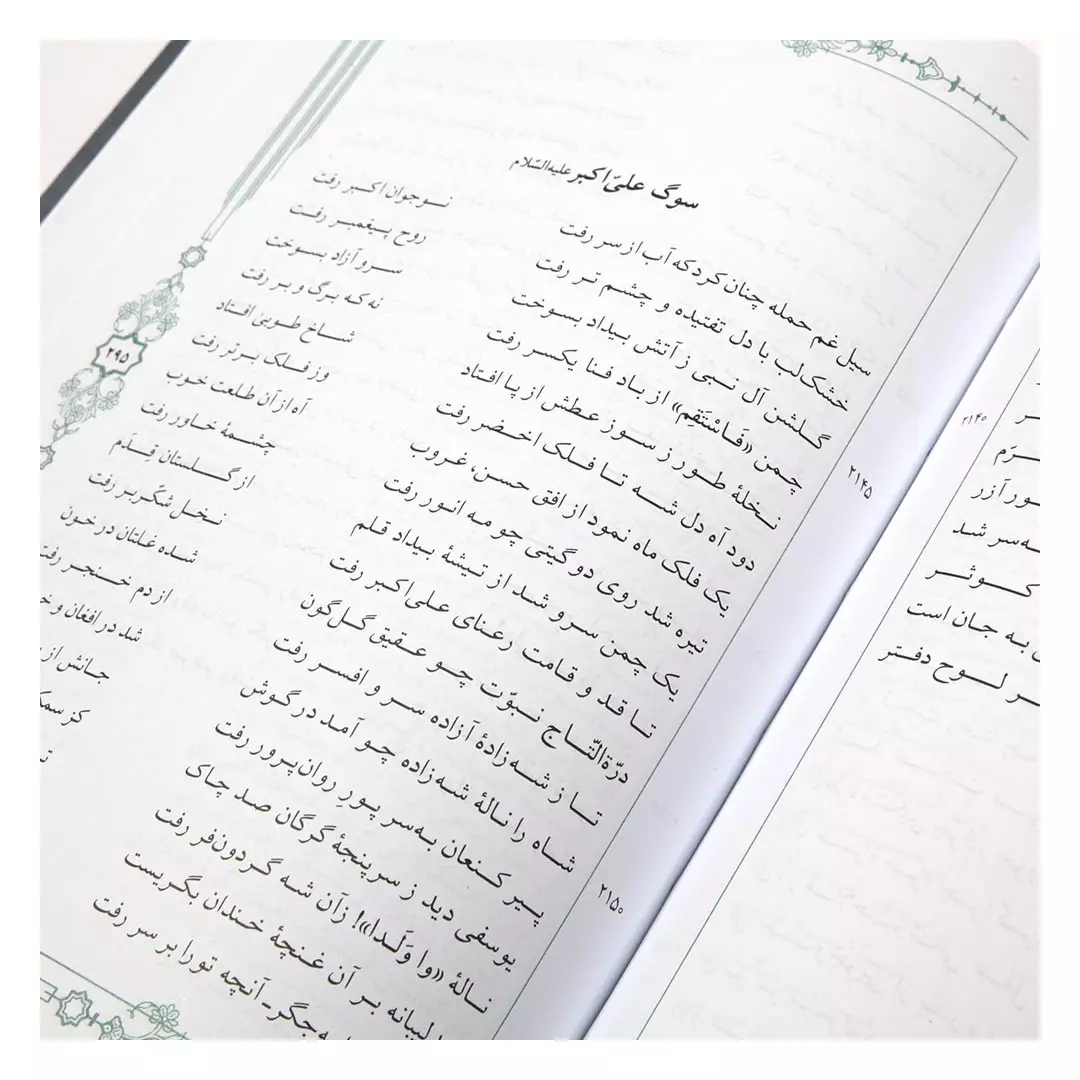 سوگ علیّ اکبر علیه‌السّلام
سیل غم حمله چنان کرد که آب از سر رفت نوجوان اکبر رفت
خشک‌لب با دل تفتیده و چشم تر رفت روح پیغمبر رفت
گلشن آل نبی ز آتش بیداد بسوخت سرو آزاد بسوخت
چمن «فَاسْتَقِم» از باد فنا یکسر رفت نه که برگ و بر رفت
۲۱۴۵ نخلهٔ طور ز سوز عطش از پا افتاد شاخ طوبیٰ افتاد
دود آه دل شه تا فلک اخضر رفت وز فلک برتر رفت
یک فلک ماه نمود از افق حسن، غروب آه از آن طلعت خوب
تیره شد روی دو گیتی چو مه انور رفت چشمهٔ خاور رفت
یک چمن سرو شد از تیشهٔ بیداد قلم از گلستان قِدَم
تا قد و قامت رعنای علی‌اکبر رفت نخل شکّربر رفت
درّةالتّاج نبوّت چو عقیق گل‌گون شده غلتان در خون
تا ز شه‌زادهٔ آزاده سر و افسر رفت از دم خنجر رفت
شاه را نالهٔ شه‌زاده چو آمد در گوش شد در افغان و
۲۱۵۰ پیر کنعان به‌سر پورِ روان‌پرور رفت جانش از
یوسفی دید ز سرپنجهٔ گرگان صد چاک کز سمک
نالهٔ «وا وَلَدا»! زآن شه گردون‌فر رفت
بر آن غنچهٔ خندان بگریست
جگر ـ آنچه تو را بر سر رفت
۲۹۵
۲۱۴۰
به‌سر شد
کوثر
به جان است
لوح دفتر